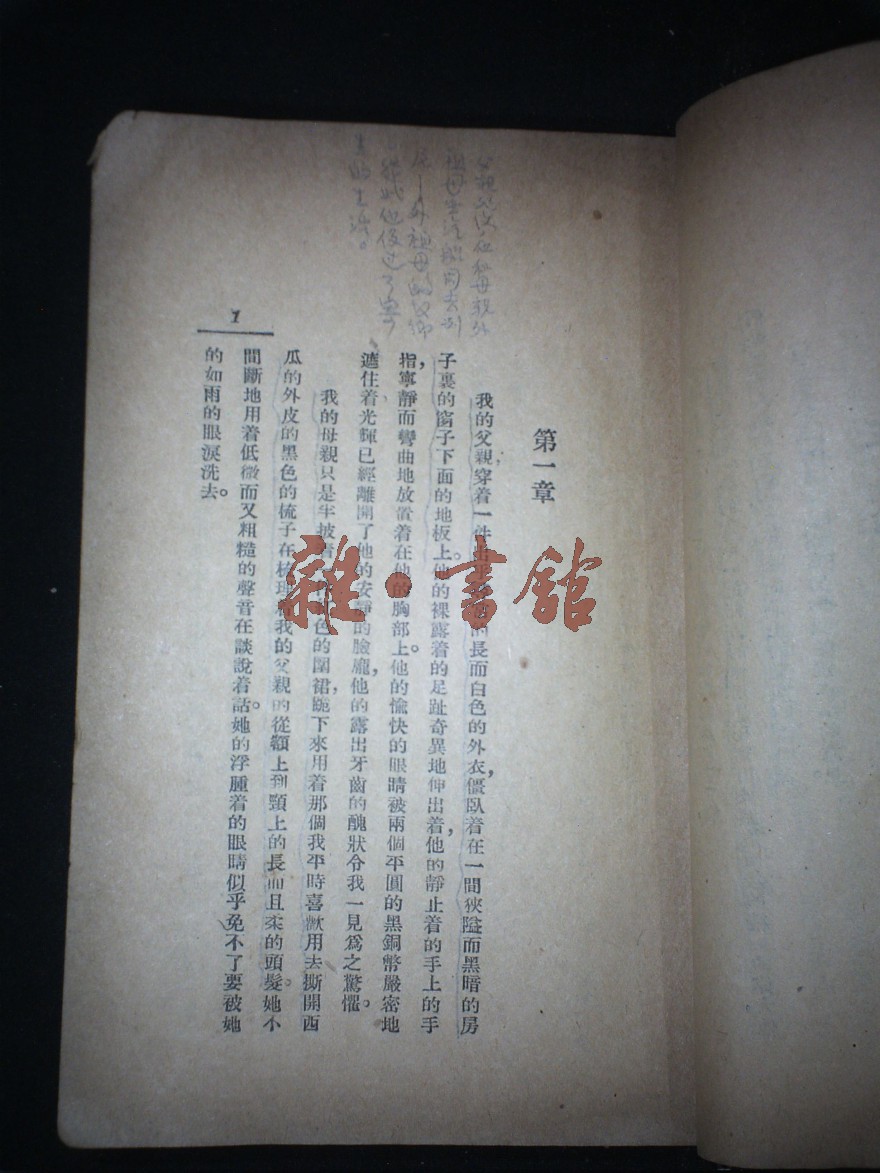 第一章
我的父親穿着一件出乎 長而白色的外衣,僵臥着在一間狹隘而黑暗的房
子裏的窗子下面的地板上。他的裸露着的足趾奇異地伸出着,他的靜止着的手上的手
指,寧靜而彎曲地放置着在他的胸部上。他的愉快的眼睛被兩個平圓的黑銅幣嚴密地
遮住着光輝已經離開了他的安靜的臉龐,他的露出牙齒的醜狀令我一見爲之驚懼。
我的母親只是半披着 色的圍裙,跪下來用着那個我平時喜歡用去撕開西
瓜的外皮的黑色的梳子在梳理着我的父親的從額上到頸上的長而且柔的頭髮。她不
間斷地用着低微而又粗糙的聲音在談說着話。她的浮腫着的眼睛似乎免不了要被她
的如雨的眼淚洗去。
1
父親死後 和母親外
祖母
外祖母的父鄉
從此他便过了
的生活。
雜·書館